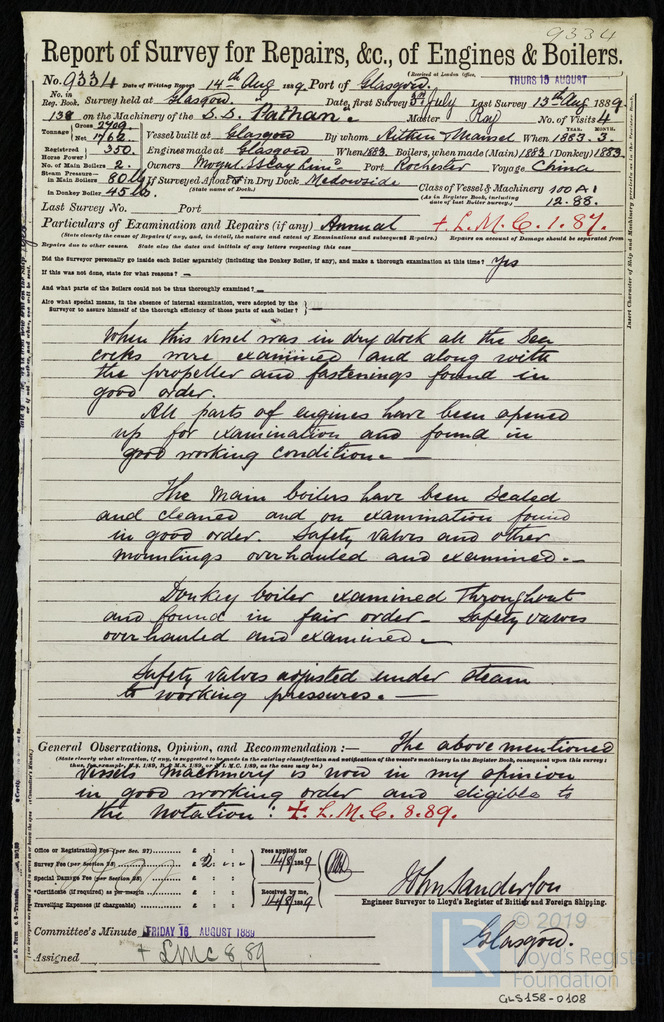 9334
Report of Survey for Repairs, &c., of Engines & Boilers.
(Received at London Office, THURS 15 AUGUST
No. 9334 Date of Writing Report 14th Aug 1889. Port of Glasgow.
No. in Reg. Book. Survey held at Glasgow. Date, first Survey 3rd July Last Survey 13th Aug 1889
138 on the Machinery of the S.S. "Pathan. Master Ray No. of Visits 4
Tonnage Gross 2709 Net 1762 Vessel built at Glasgow By whom Aitken & Mansel When 1883. YEAR. 3. MONTH.
Registered Horse Power 350 Engines made at Glasgow When 1883. Boilers, when made (Main) 1883 (Donkey) 1883
No. of Main Boilers 2. Owners Mogul SS Coy Limd. Port Rochester Voyage China
Steam Pressure— in Main Boilers 80 lbs If Surveyed Afloat or in Dry Dock Medowside Class of Vessel & Machinery 100 A1
in Donkey Boiler 45 lbs. (State name of Dock.) (As in Register Book, including date of last Boiler survey.) 12.88.
Last Survey No. Port
Particulars of Examination and Repairs (if any) Annual + L.M.C. 1.87.
(State clearly the cause of Repairs if any, and, in detail, the nature and extent of Examinations and subsequent Repairs.) Repairs on account of Damage should be separated from
Repairs due to other causes. State also the dates and initials of any letters respecting this case
Did the Surveyor personally go inside each Boiler separately (including the Donkey Boiler, if any), and make a thorough examination at this time? Yes
If this was not done, state for what reasons? —
And what parts of the Boilers could not be thus thoroughly examined? —
Also what special means, in the absence of internal examination, were adopted by the
Surveyor to assure himself of the thorough efficiency of those parts of each boiler? —
When this vessel was in dry dock all the Sea
cocks were examined and along with
the propeller and fastenings found in
good order.
All parts of engines have been opened
up for examination and found in
good working condition. —
The Main boilers have been Scaled
and cleaned and on examination found
in good order. Safety valves and other
mountings overhauled and examined. —
Donkey boiler examined throughout
and found in fair order — Safety valves
overhauled and examined. —
Safety valves adjusted under steam
to working pressures. —
General Observations, Opinion, and Recommendation :— The above mentioned
(State clearly what alteration, if any, is suggested to be made in the existing classification and notification of the vessel's machinery in the Register Book, consequent upon this survey;
vessels machinery is now in my opinion
in good working order and eligible to
the notation : + L.M.C. 8.89.
Office or Registration Fee (per Sec. 27) £ : :
Survey Fee (per Section 28) £ 2 : - : -
Special Damage Fee (per Section 28) £ : :
Certificate (if required) as per margin £ : :
Travelling Expenses (if chargeable) £ : :
Fees applied for
14/8/1889
Received by me,
14/8/1889
John Sanderson
Engineer Surveyor to Lloyd's Register of British and Foreign Shipping.
Committee's Minute FRIDAY 16 AUGUST 1889
Glasgow.
Assigned + LMC 8,89
© 2019
LR Lloyd's Register Foundation
GLS158-0108
Insert Character of Ship and Machinery precisely as in the Register Book.